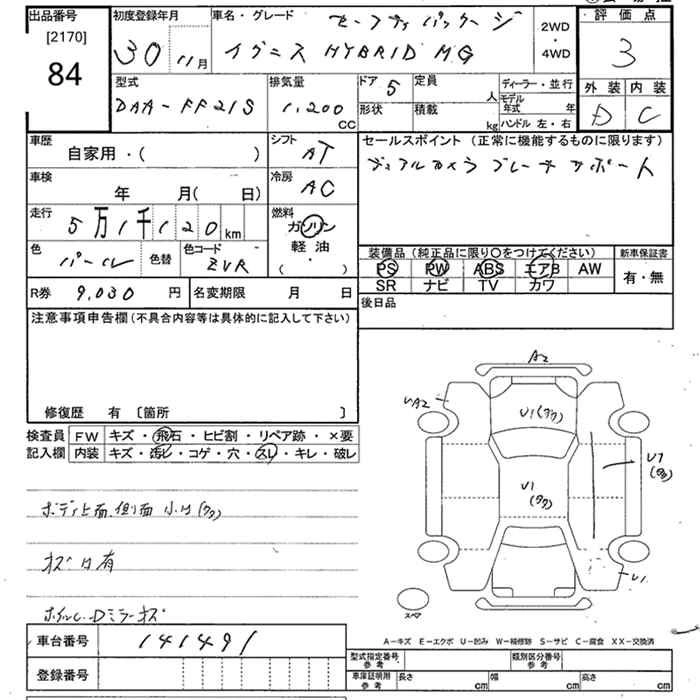 出品番号
[2170]
84
初度登録年月
30 11月
車名・グレード
セーフティパッケージ
イグニス HYBRID MG
2WD
・
4WD
評価点
3
外装 内装
D C
型式
DAA-FF21S
排気量
1,200
CC
ドア 5
定員
人
形状
積載
kg
ディーラー・並行
モデル年式 年
ハンドル 左・右
車歴
自家用・( )
シフト
AT
車検
年 月( 日)
冷房
AC
走行
5万1千120km
燃料
ガソリン
軽油
( )
色
パール
色替
色コード
ZVR
R券 9,030 円
名変期限 月 日
セールスポイント(正常に機能するものに限ります)
デュアルカメラブレーキサポート
装備品(純正品に限り○をつけてください)
PS PW ABS エアB AW
SR ナビ TV カワ
新車保証書
有・無
後日品
注意事項申告欄(不具合内容等は具体的に記入して下さい)
修復歴 有 〔箇所 〕
検査員
記入欄
FW キズ・飛石・ヒビ割・リペア跡・×要
内装 キズ・汚レ・コゲ・穴・スレ・キレ・破レ
ボディ上面、側面 小凹(タク)
キズ凹有
ホイル、Dミラーキズ
A2
UA2
U1(タク)
U1
(タク)
U7
(タタ)
U1
スペア
A-キズ E-エクボ U-凹み W-補修跡 S-サビ C-腐食 XX-交換済
車台番号 141491
登録番号
型式指定番号
参考
類別区分番号
参考
車庫証明用
参考
長さ cm
幅 cm
高さ cm